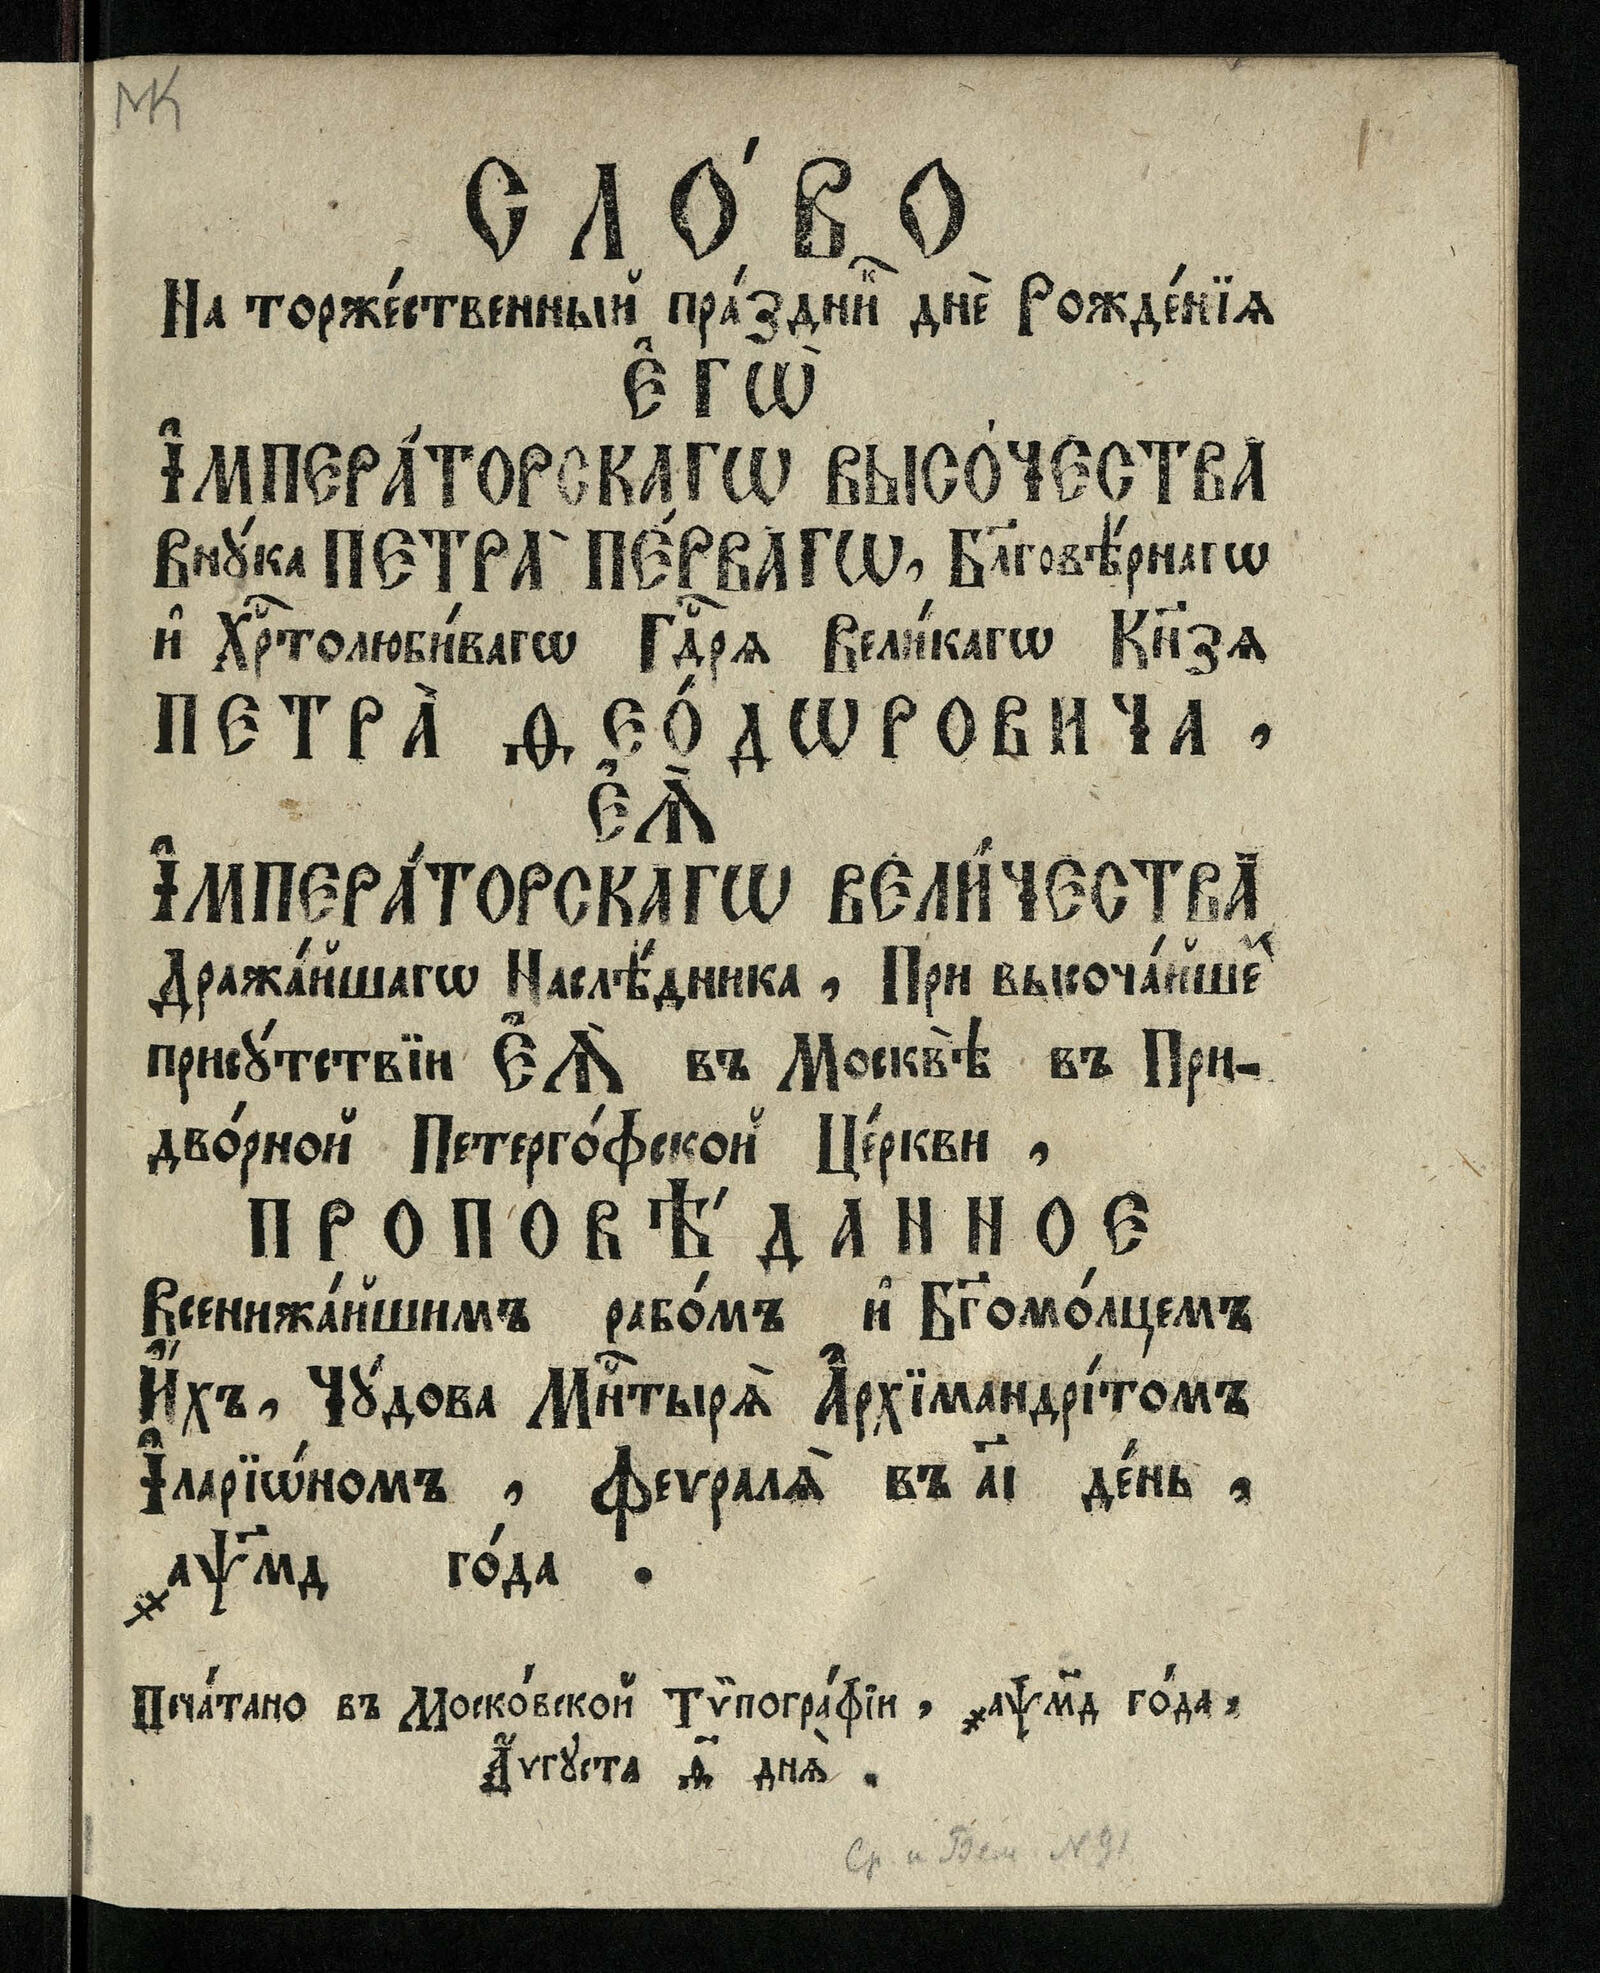 МК
1
СЛО́ВО
На торже́ственный пра́здни҇к днѐ Рожде́нїѧ
Е҆гѡ̀
І҆МПЕРА́ТОРСКАГѠ ВЫСО́ЧЕСТВА
Внꙋ́ка ПЕТРА̀ ПЕ́РВАГѠ, Бл҃говѣ́рнагѡ
и҆ Хрⷭ҇толюби́вагѡ Гдⷭ҇рѧ Вели́кагѡ Кн҃зѧ
ПЕТРА̀ Ѳ ЕО́ДѠРОВИЧА,
Е҆Ѧ̀
І҆МПЕРА́ТОРСКАГѠ ВЕЛИ́ЧЕСТВА
Дража́йшагѡ Наслѣ́дника, При высоча́йшеⷨ
присꙋ́тствїи Е҆Ѧ̀ въ Москвѣ̀ въ При-
дво́рной Петерго́фской Це́ркви,
ПРОПОВѢ́ДАННОЕ
Всенижа́йшимъ рабо́мъ и҆ Бг҃омо́лцемъ
И҆́хъ, Чꙋ́дова Мнⷭ҇тырѧ̀ А҆рхїмандрі́томъ
І҆ларїѡ́номъ, Феѵралѧ̀ въ а҃і де́нь,
҂аѱ҃мд го́да.
Печа́тано въ Моско́вской Тѷпогра́фїи, ҂аѱм҃д го́да,
А҆́ѵгꙋста ѳ҃ днѧ̀.